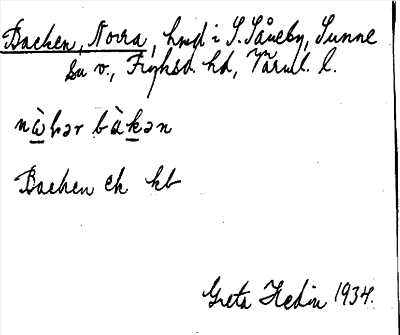 Backen, Norra, hmd i S. Såneby, Sunne
sn v., Fryksd. hd, Värml. l.
nàrər bàkən
Backen ek kb
Greta Hedin 1934.